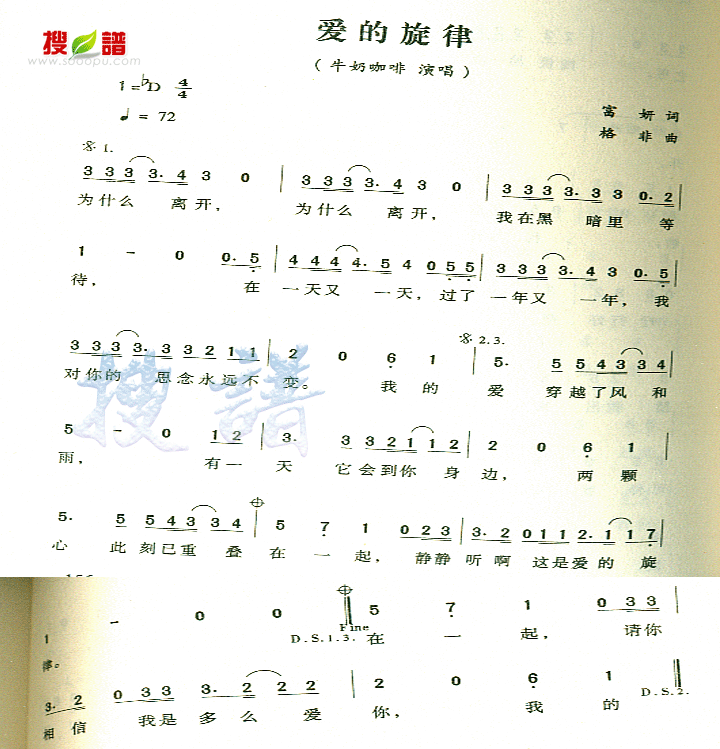 搜譜
www.sooopu.com
爱的旋律
(牛奶咖啡 演唱)
1=♭D 4/4
♩= 72
富 妍 词
格 非 曲
𝄋 1.
3 3 3 3. 4 3 0 | 3 3 3 3. 4 3 0 | 3 3 3 3. 3 3 0. 2 |
为什么 离开, 为什么 离开, 我在黑 暗里 等
1 - 0 0. 5 | 4 4 4 4. 5 4 0 5 5 | 3 3 3 3. 4 3 0. 5 |
待, 在 一天又 一天, 过了 一年又 一年, 我
3 3 3 3. 3 3 2 1 1 | 2 0 6 1 | 5. 5 5 4 3 3 3 4 |
𝄋 2.3.
对你的 思念永远不 变。 我 的 爱 穿越了风 和
5 - 0 1 2 | 3. 3 3 2 1 1 1 2 | 2 0 6 1 |
雨, 有一 天 它会到你 身 边, 两 颗
5. 5 5 5 4 3 3 3 4 | 5 7 1 0 2 3 | 3. 2 0 1 1 2. 1 1 1 7 |
心 此 刻已重 叠 在 一 起, 静静 听啊 这是爱的 旋
1 - 0 0 | 5 7 1 0 3 3 |
Fine
D.S.1.3.
律。 在 一 起, 请你
3. 2 0 3 3 3. 2 2 2 | 2 0 6 1 |
D.S.2.
相信 我是 多么 爱 你, 我 的